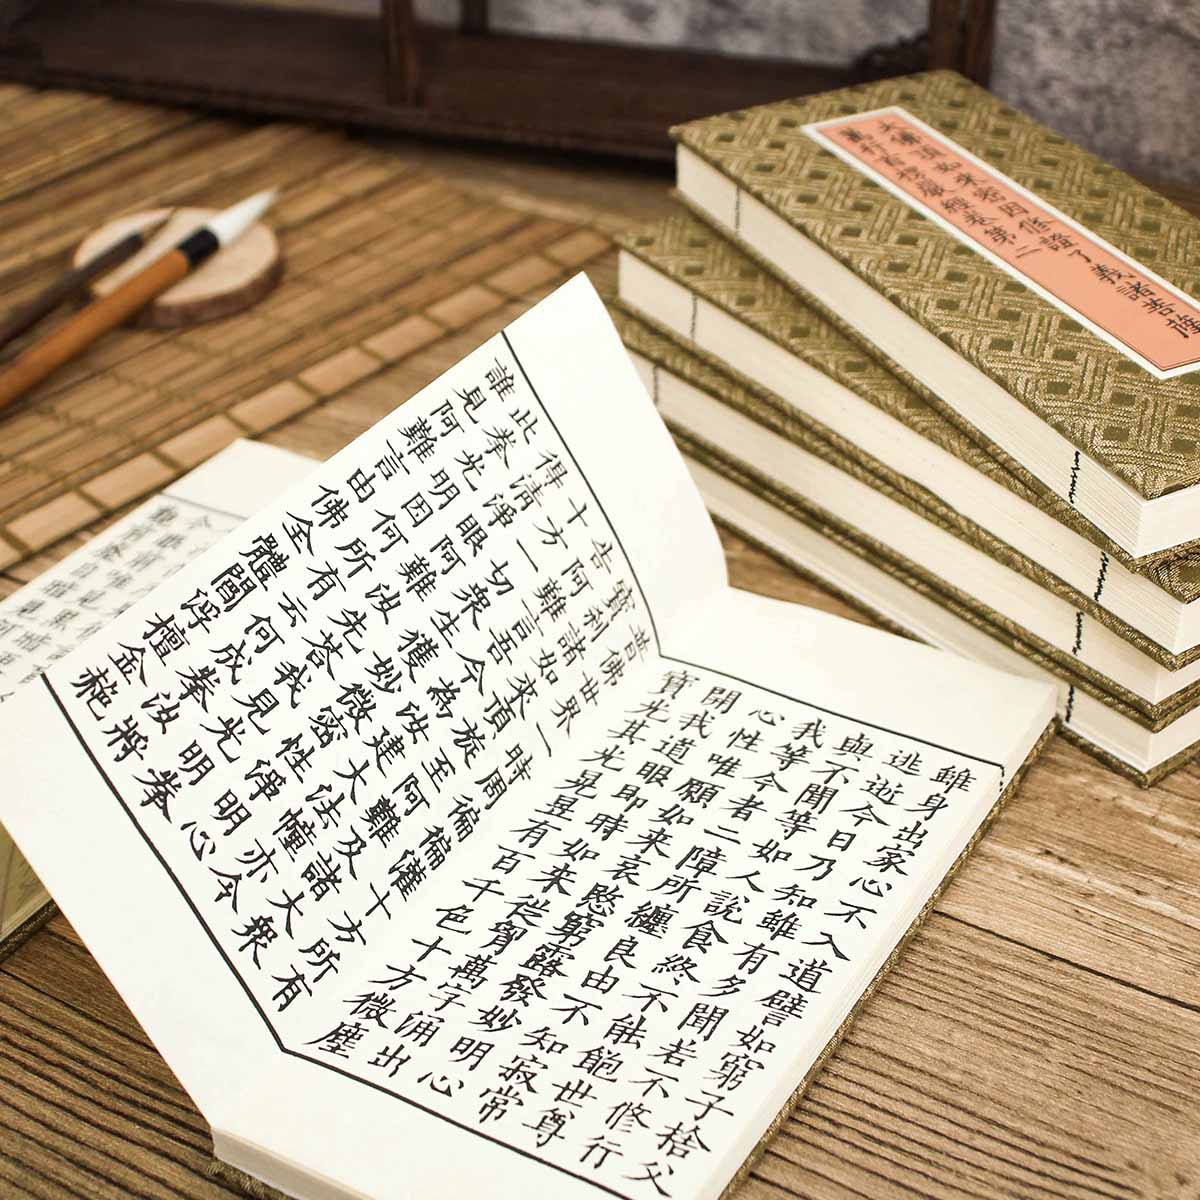 大佛頂如來密因修證了義諸菩薩
萬行首楞嚴經卷第二
雖身出家心不入道譬如窮子捨父
逃逝今日乃知雖有多聞若不修行
與不聞等如人說食終不能飽世尊
我等今者二障所纏良由不知寂常
心性唯願如來哀愍窮露發妙明心
開我道眼即時如來從胷萬字涌出
寶光其光晃昱有百千色十方微塵
普佛世界一時周徧徧灌十方所有
寶剎諸如來頂旋至阿難及諸大衆
告阿難言吾今為汝建大法幢亦令
十方一切衆生獲妙微密性淨明心
得清淨眼阿難汝先答我見光明拳
此拳光明因何所有云何成拳汝將
誰見阿難言由佛全體閻浮檀金赩